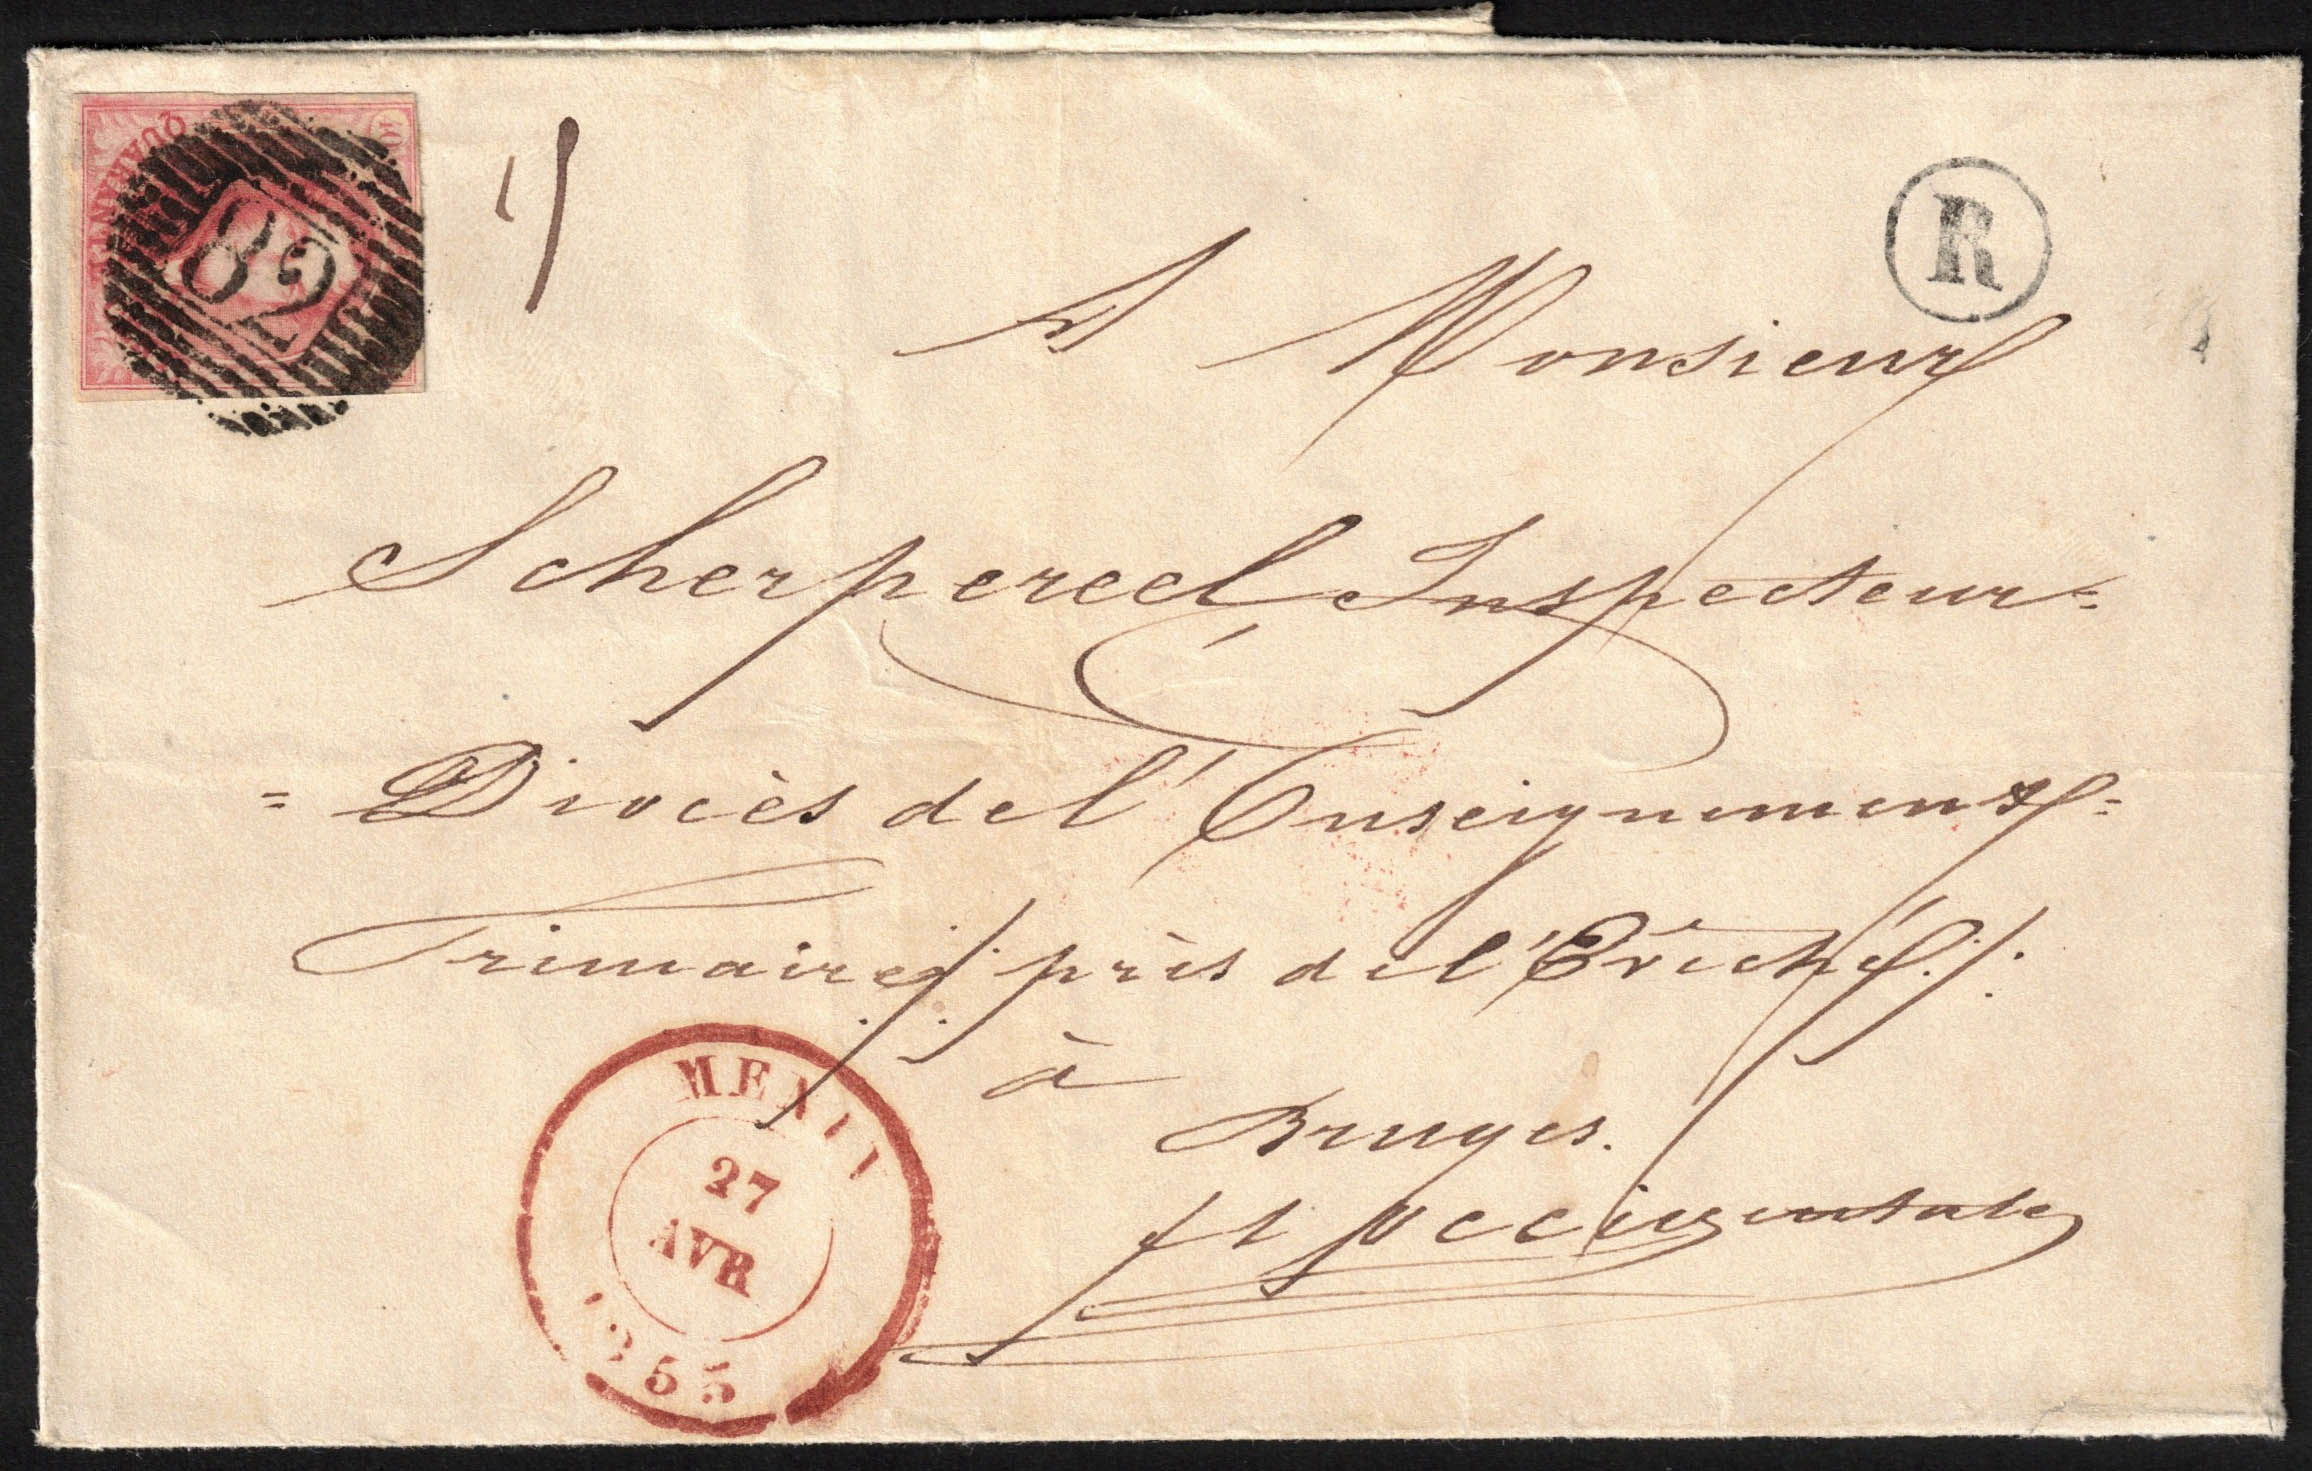 QUARANTE
40
82
R
A Monsieur
Scherpereel Inspecteur=
=Diocès de l'Enseignement=
Primaire /: près de l'Evêché :/:
à
Bruges.
fl occidentale
MENIN
27
AVR
1855